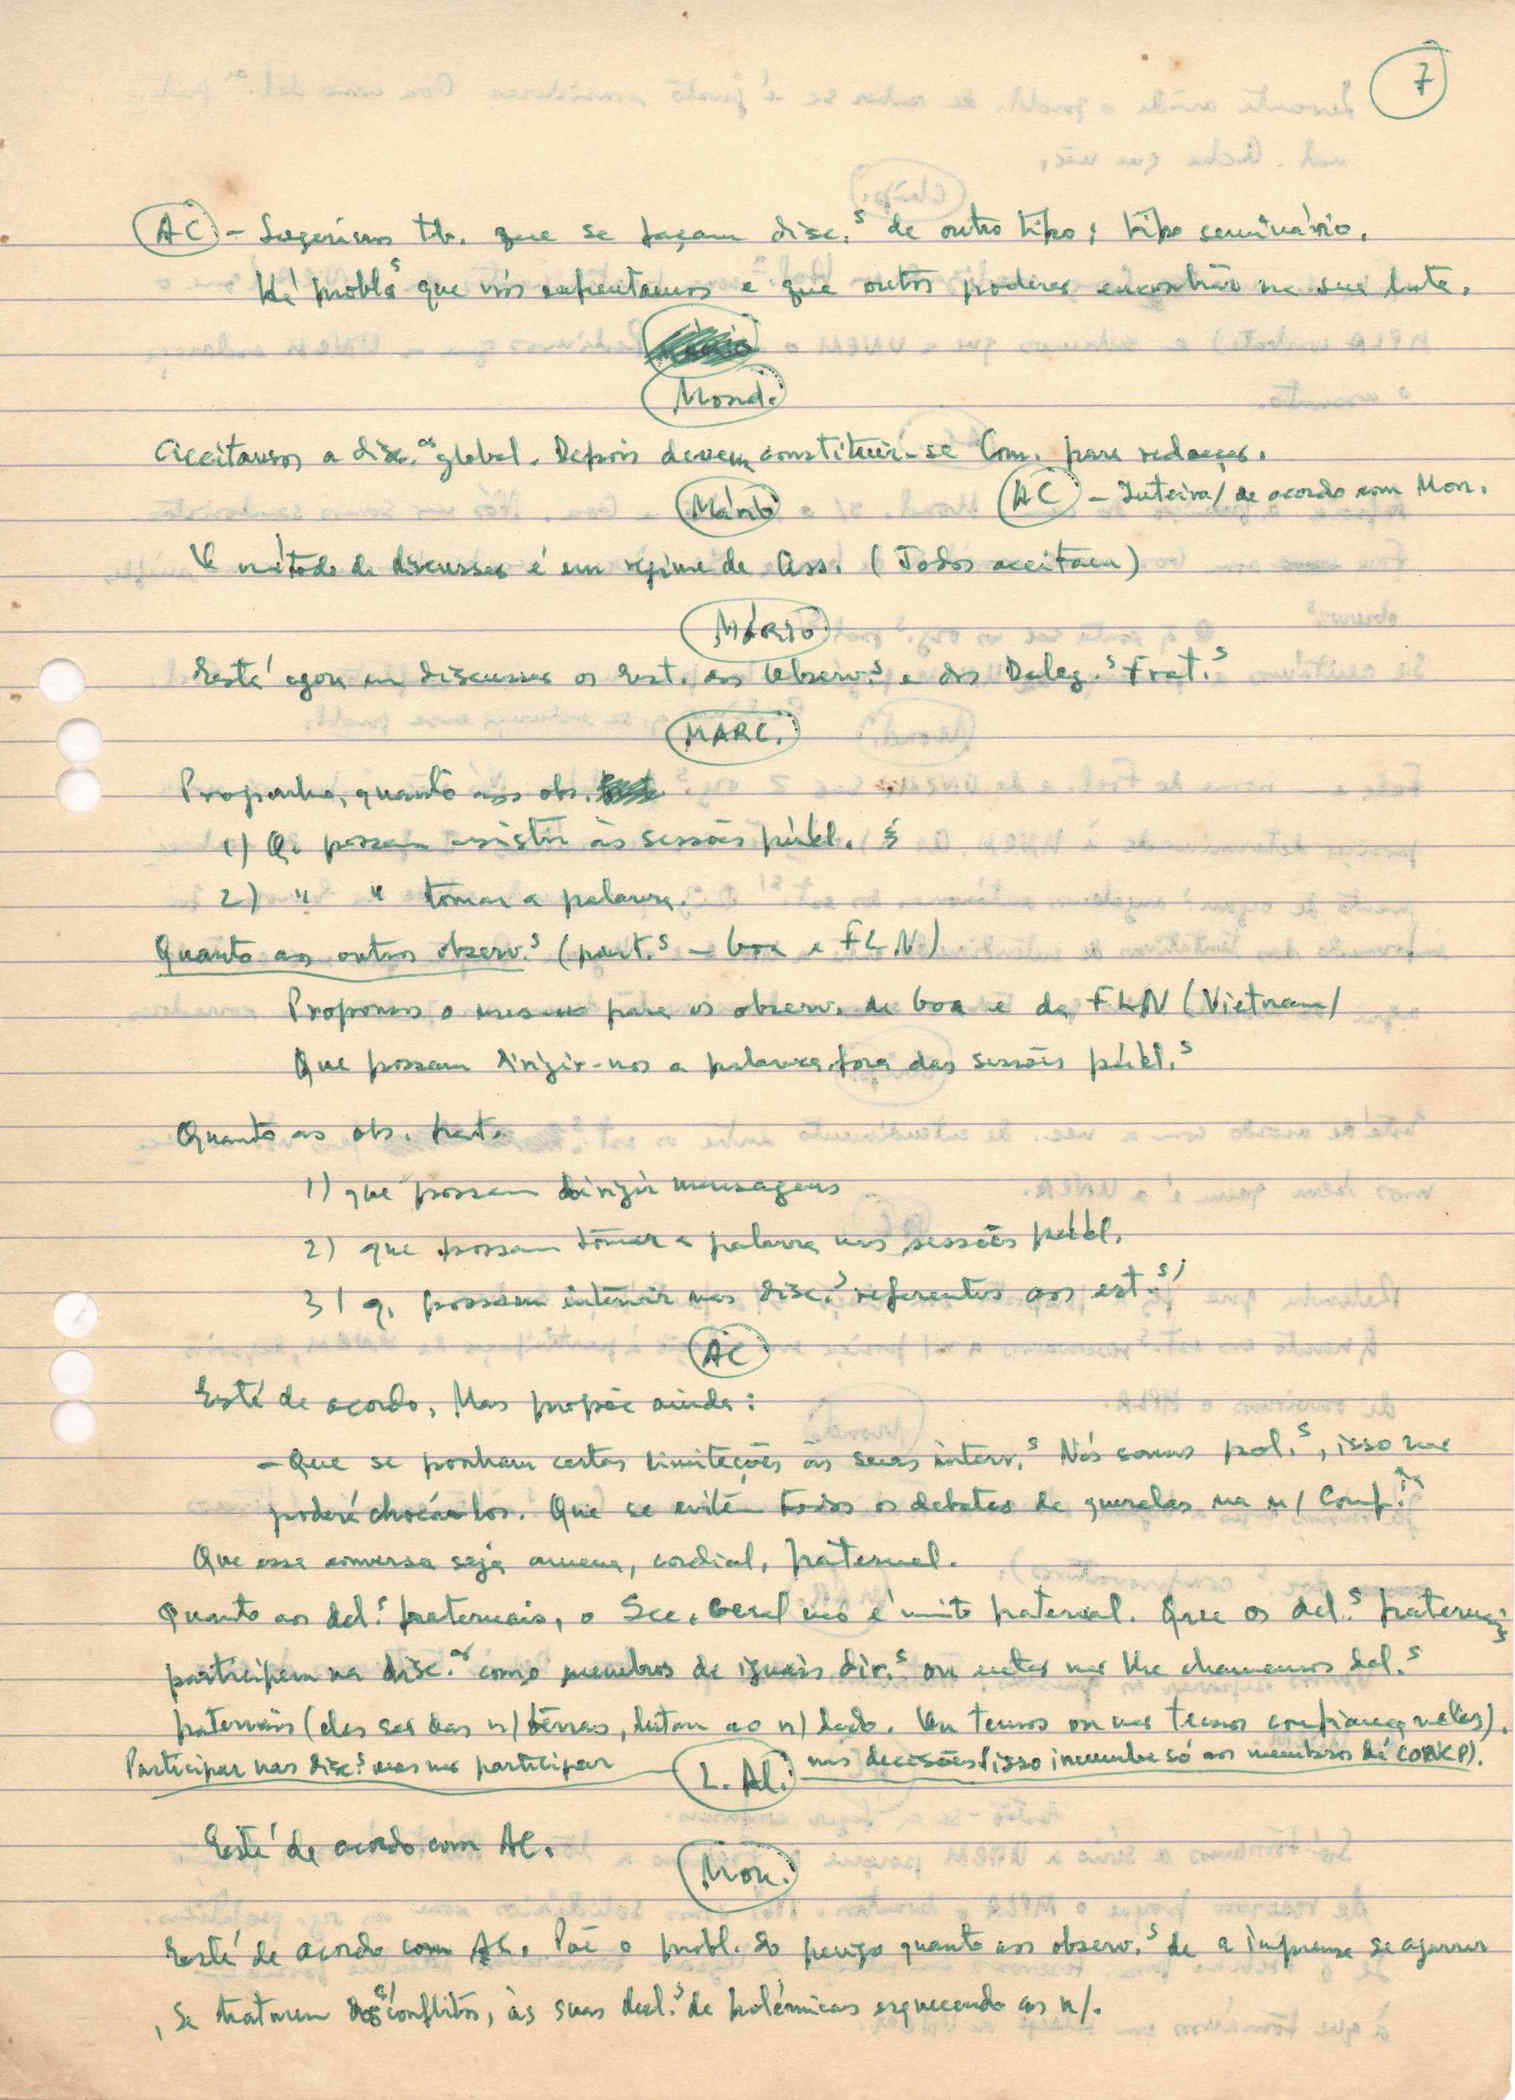 7
AC - Sugerimos tb. que se façam disc.s de outro tipo; tipo seminário.
Há probl.s que nós enfrentamos e que outros poderão encontrar na sua luta.
Mond.
Aceitamos a disc.ão global. Depois devem constituir-se Com. para redacção.
Mário
AC - Inteira/ de acordo com Mon.
O método de discussão é em regime de Ass. (Todos aceitam)
MÁRIO
Está agora em discussão os Est. dos Observ.s e dos Deleg.s Frat.s
MARC.
Proponho, quanto aos obs.
1) Q. possam assistir às sessões públ.
2) " " tomar a palavra.
Quanto aos outros observ.s (part.s - Goa e FLN)
Propomos o mesmo para os observ. de Goa e da FLN (Vietnam)
Que possam dirigir-nos a palavra fora das sessões públ.s
Quanto aos obs. frat.
1) que possam dirigir mensagens
2) que possam tomar a palavra nas sessões públ.
3) q. possam intervir nas disc.s referentes aos est.s
AC
Está de acordo. Mas propõe ainda:
- Que se ponham certas limitações às suas interv.s Nós somos pol.s, isso não
poderá chocá-los. Que se evitem todos os debates de querelas na n/ Conf.ia
Que essa conversa seja amena, cordial, fraternal.
Quanto aos del.s fraternais, o Sec. Geral não é muito fraternal. Que os del.s fraternais
participem na disc.ão como membros de iguais dir.s ou então não lhe chamemos del.s
fraternais (eles são das n/ terras, lutam ao n/ lado. Ou temos ou não temos confiança neles).
Participar nas disc.s mas não participar nas decisões (isso incumbe só aos membros da CONCP).
L. Al.
Está de acordo com AC.
Mon.
Está de acordo com AC. Põe o probl. do perigo quanto aos observ.s de a imprensa se agarrar
, se tratarem dos conflitos, às suas decl.s de polémicas esquecendo as n/.